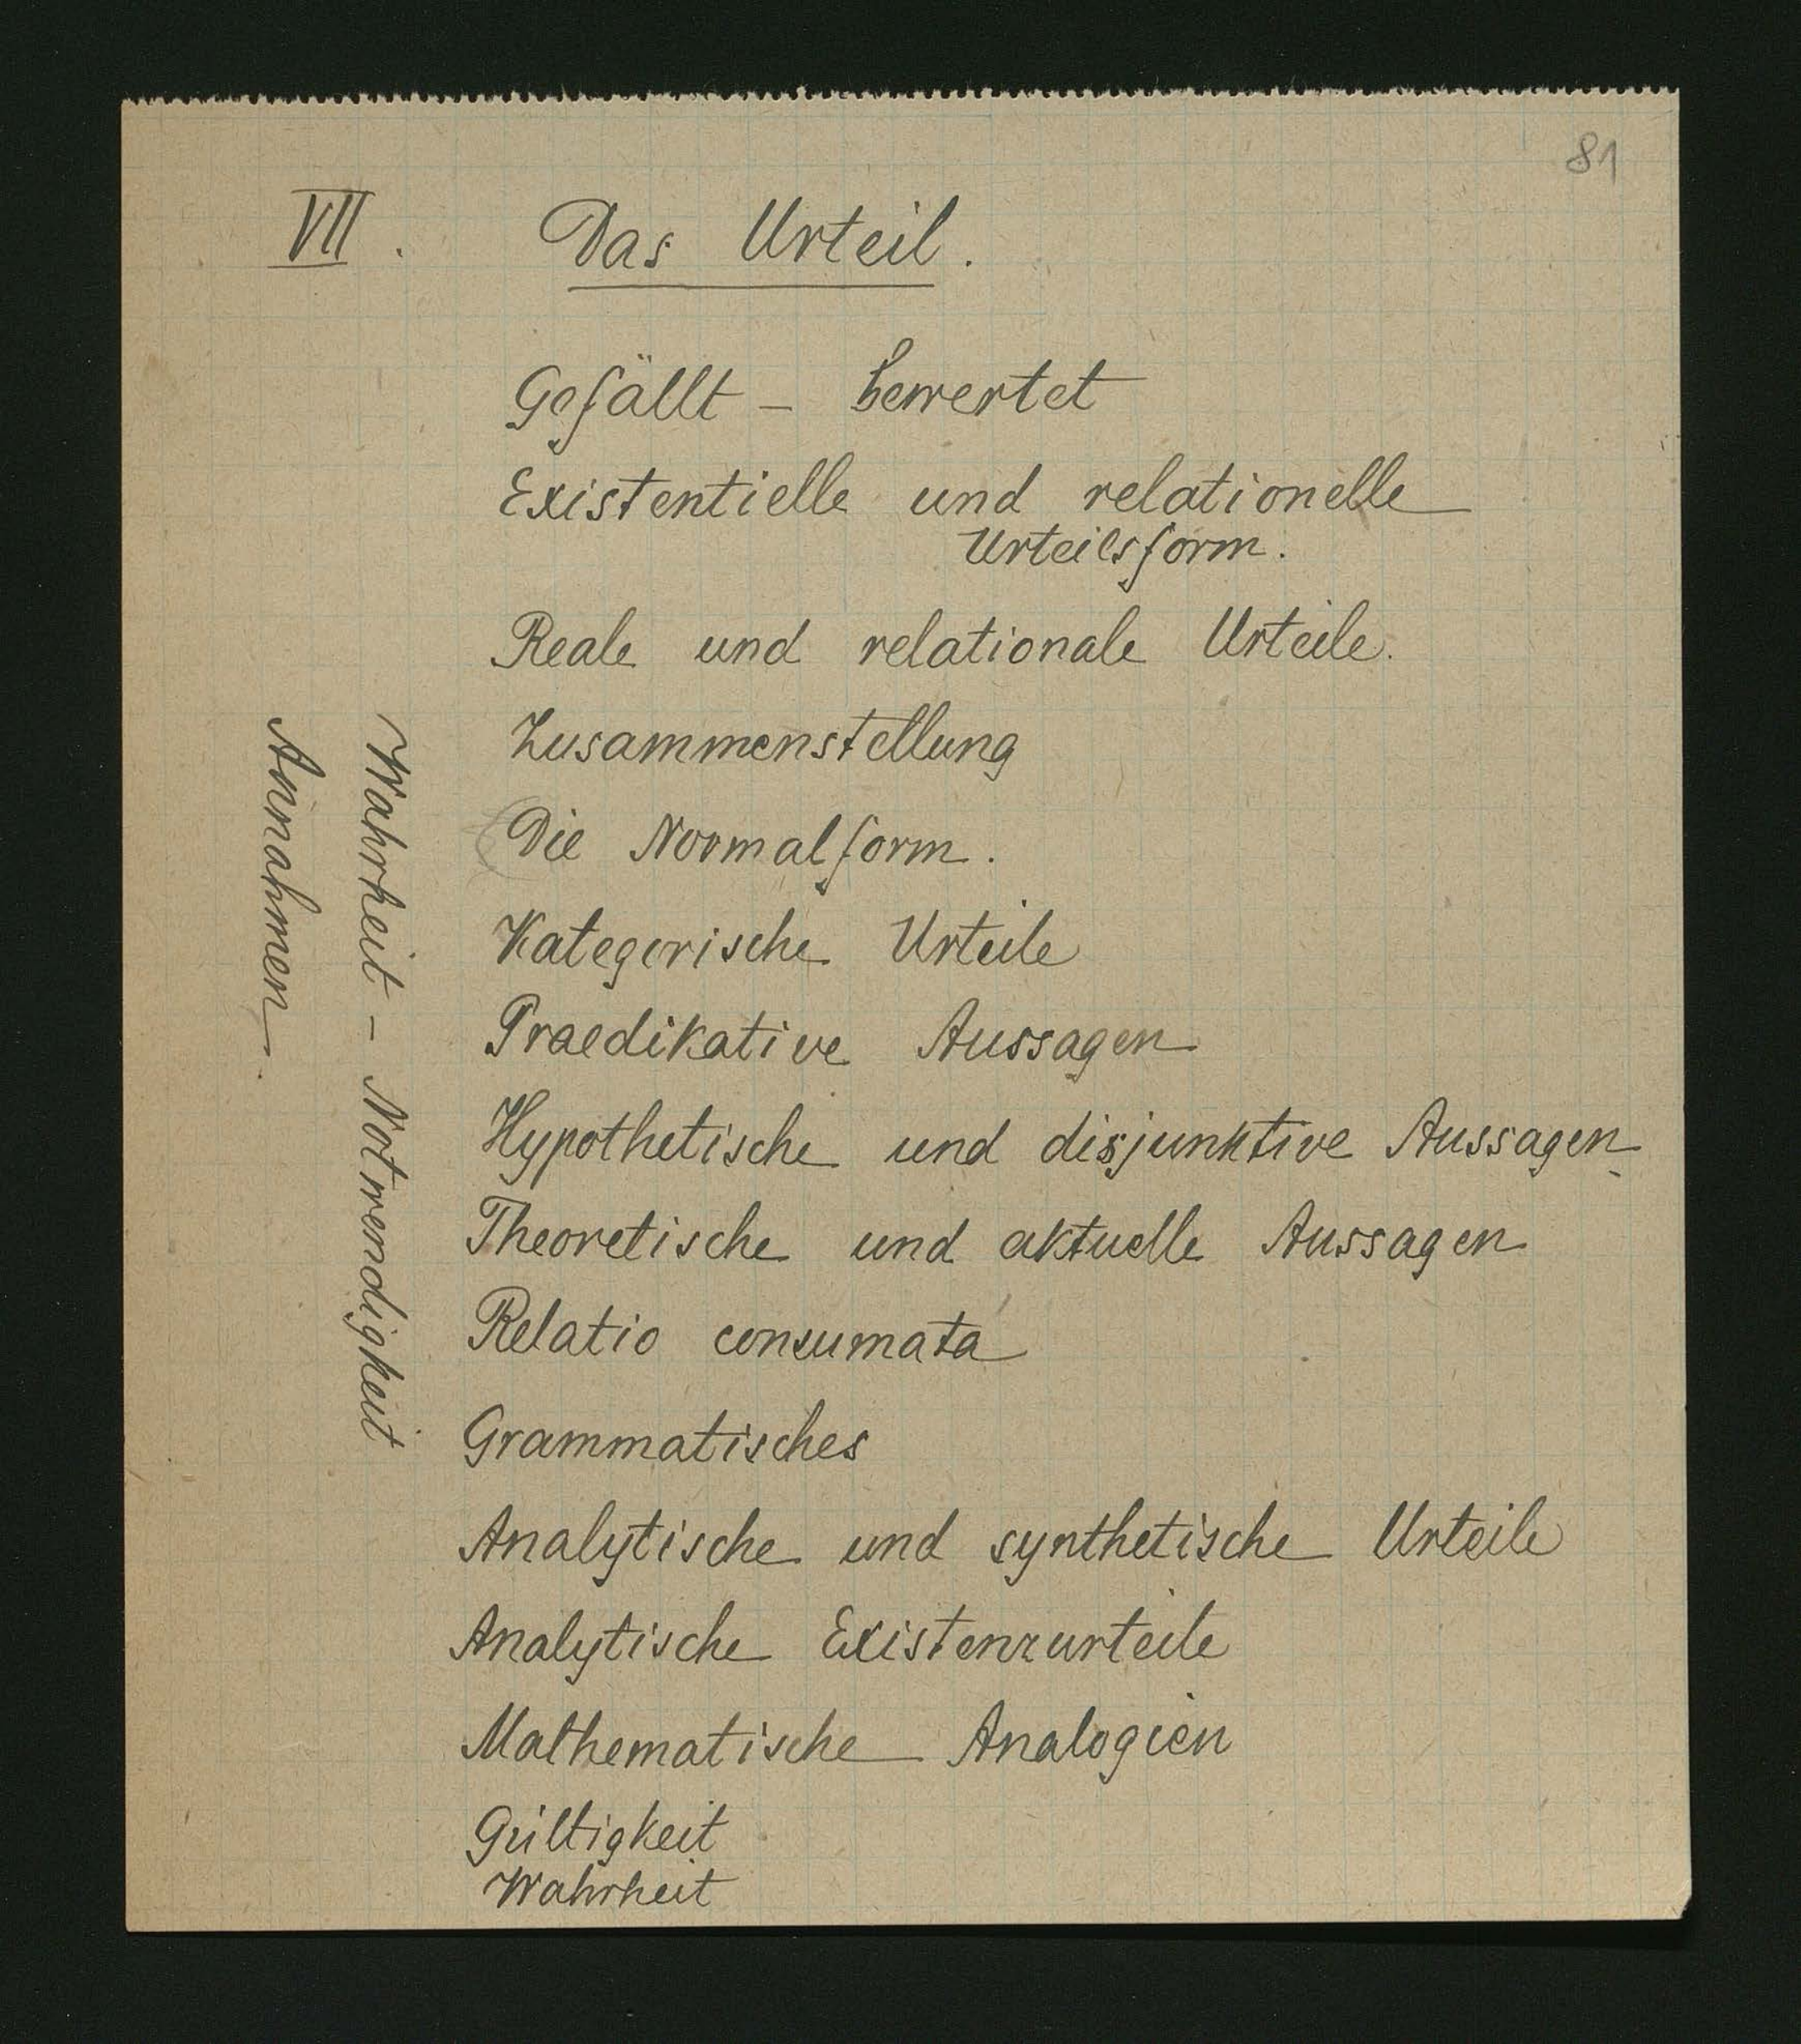 81
VII. Das Urteil.
Gefällt - bewertet
Existentielle und relationelle
Urteilsform.
Reale und relationale Urteile.
Zusammenstellung
Die Normalform.
Kategorische Urteile
Praedikative Aussagen
Hypothetische und disjunktive Aussagen
Theoretische und aktuelle Aussagen
Relatio consumata
Grammatisches
Analytische und synthetische Urteile
Analytische Existenzurteile
Mathematische Analogien
Gültigkeit
Wahrheit
Wahrheit - Notwendigkeit
Annahmen.